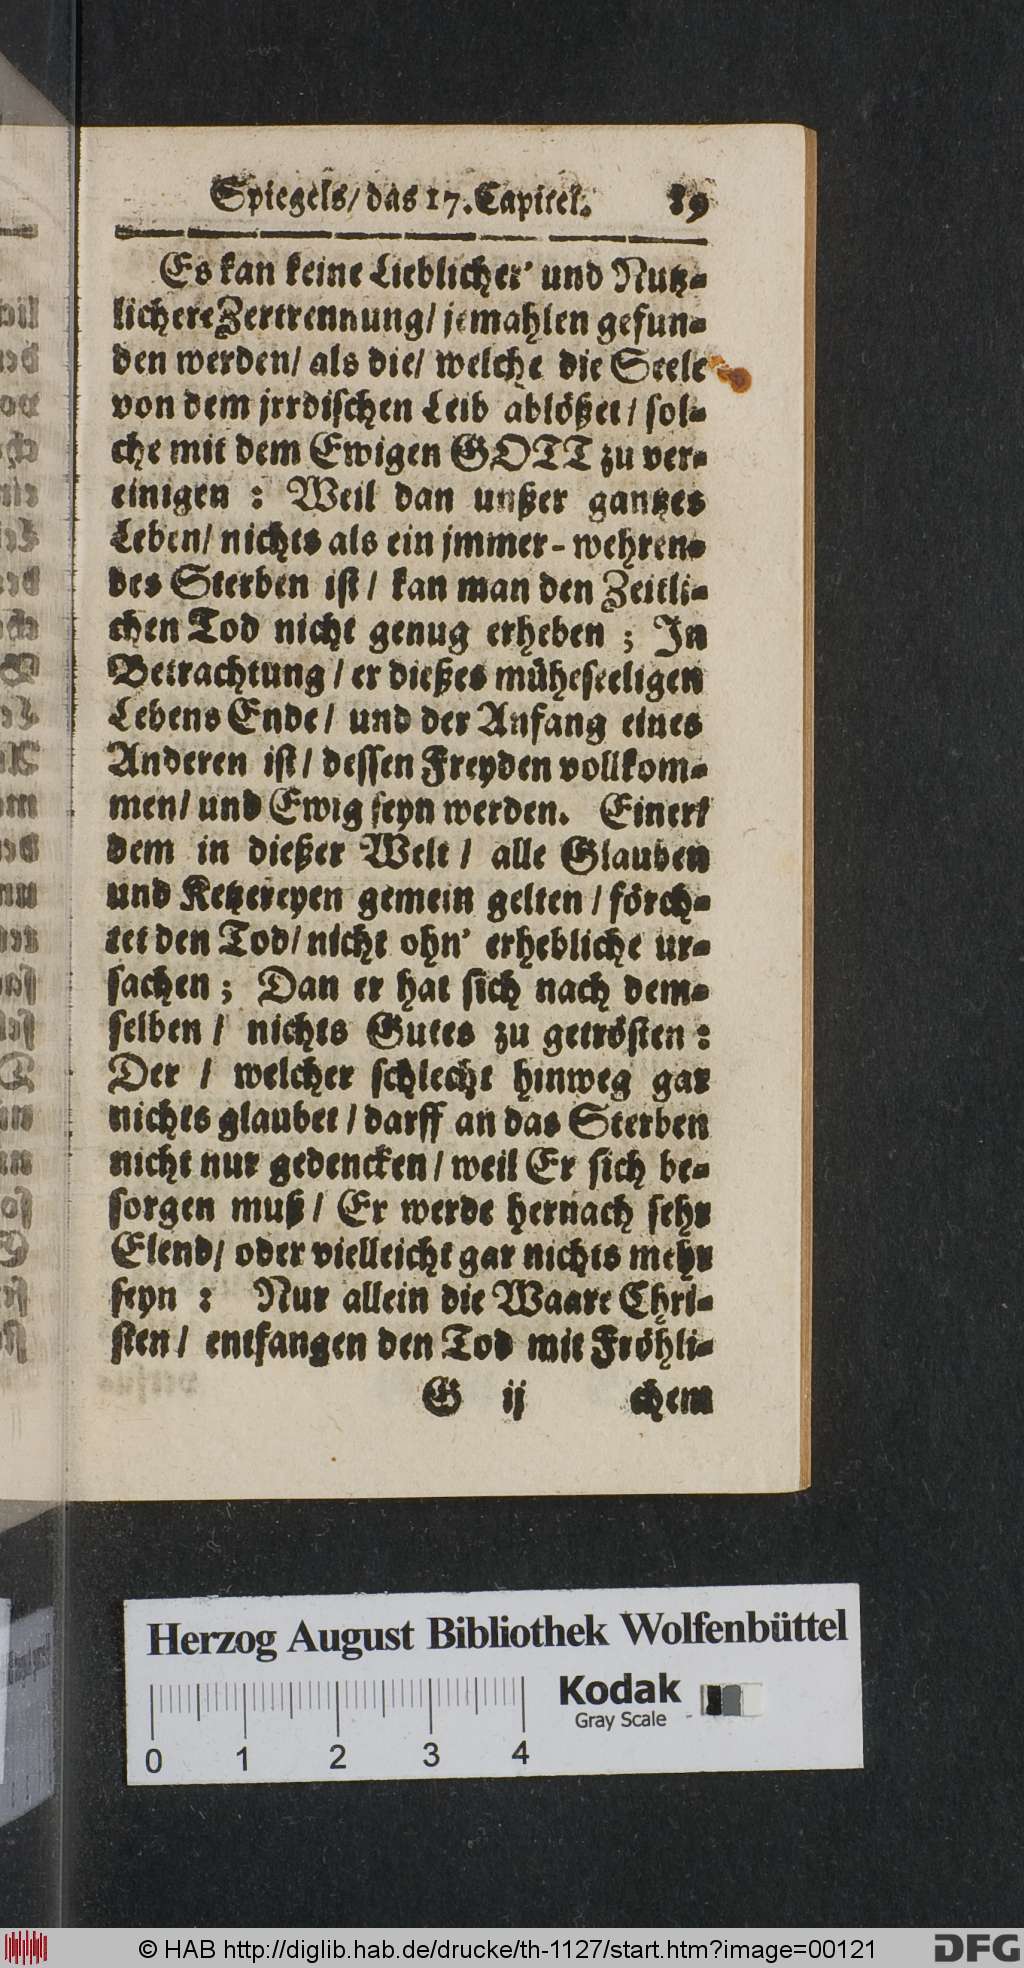 Spiegels/ das 17. Capitel. 89
Es kan keine Lieblicher' und Nutz-
lichere Zertrennung/ jemahlen gefun-
den werden/ als die/ welche die Seele
von dem jrrdischen Leib ablößet/ sol-
che mit dem Ewigen GOTT zu ver-
einigen : Weil dan unßer gantzes
Leben/ nichts als ein jmmer-wehren-
des Sterben ist/ kan man den Zeitli-
chen Tod nicht genug erheben ; In
Betrachtung/ er dießes müheseeligen
Lebens Ende/ und der Anfang eines
Anderen ist/ dessen Freyden vollkom-
men/ und Ewig seyn werden. Einer/
dem in dießer Welt/ alle Glauben
und Ketzereyen gemein gelten/ förch-
tet den Tod/ nicht ohn' erhebliche ur-
sachen ; Dan er hat sich nach dem-
selben/ nichts Gutes zu getrösten :
Der/ welcher schlecht hinweg gar
nichts glaubet/ darff an das Sterben
nicht nur gedencken/ weil Er sich be-
sorgen muß/ Er werde hernach sehr
Elend/ oder vielleicht gar nichts mehr
seyn : Nur allein die Waare Chri-
sten/ entfangen den Tod mit Fröhli-
G ij chem
Herzog August Bibliothek Wolfenbüttel
Kodak
Gray Scale
0 1 2 3 4
© HAB http://diglib.hab.de/drucke/th-1127/start.htm?image=00121
DFG